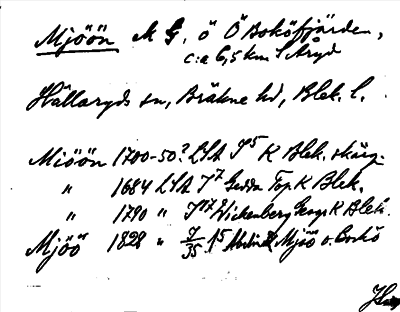 Mjöön M G, ö Ö Boköfjärden,
c:a 6,5 km S Åryd
Hällaryds sn, Bräkne hd, Blek. l.
Miöön 1700-50? LSA S5 K Blek. skärg.
" 1684 LSA S7 Gedda Top. K Blek.
" 1790 " S17 Wickenberg Geogr K Blek.
Mjöö 1828 " 7/35 :15 Mjöö o. Bockö